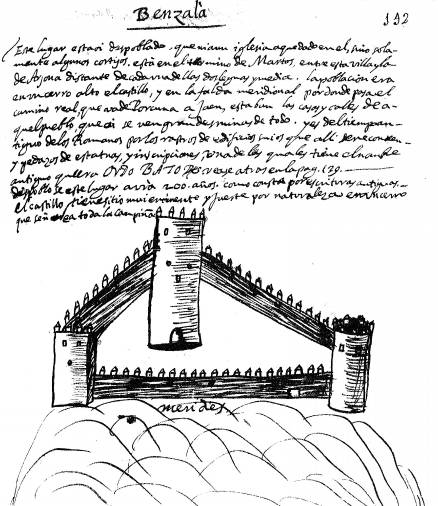 Benzalá
192
Este lugar esta oi despoblado. que ni aun iglesia a quedado en el, sino sola-
mente algunos cortijos. está en el termino de Martos, entre esta villa y la
de Arjona distante de cada una de las dos leguas y media. la poblacion era
en un cerro alto el castillo, y en la falda meridional por donde pasa el
camino real, que va de Porcuna a Jaen, estaban las casas y calles de a-
quel pueblo que oi se ven grandes ruinas de todo. y es del tiempo an-
tiguo de los Romanos por los rastros de edificios suios que alli se reconocen
y pedazos de estatuas, y inscripciones, en una de las quales tiene el nombre
antiguo que era vease atras en la pag. 129.
despoblose este lugar avra 200. años. como consta por escrituras antiguas.
el castillo tiene sitio mui eminente y fuerte por naturaleza en un cerro
que señorea toda la campiña
merides